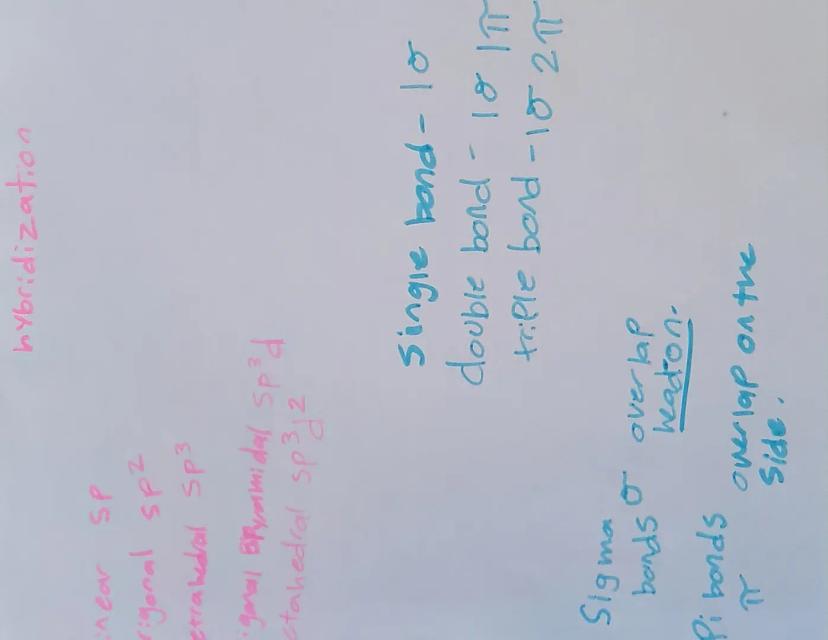 hybridization
inear sp
rigonal sp²
etrahedral sp³
igonal pyramidal sp³d
ctahedral sp³d²
Single bond - 1σ
double bond - 1σ 1π
triple bond - 1σ 2π
Sigma bonds σ overlap headon.
Pi bonds π overlap on the side.